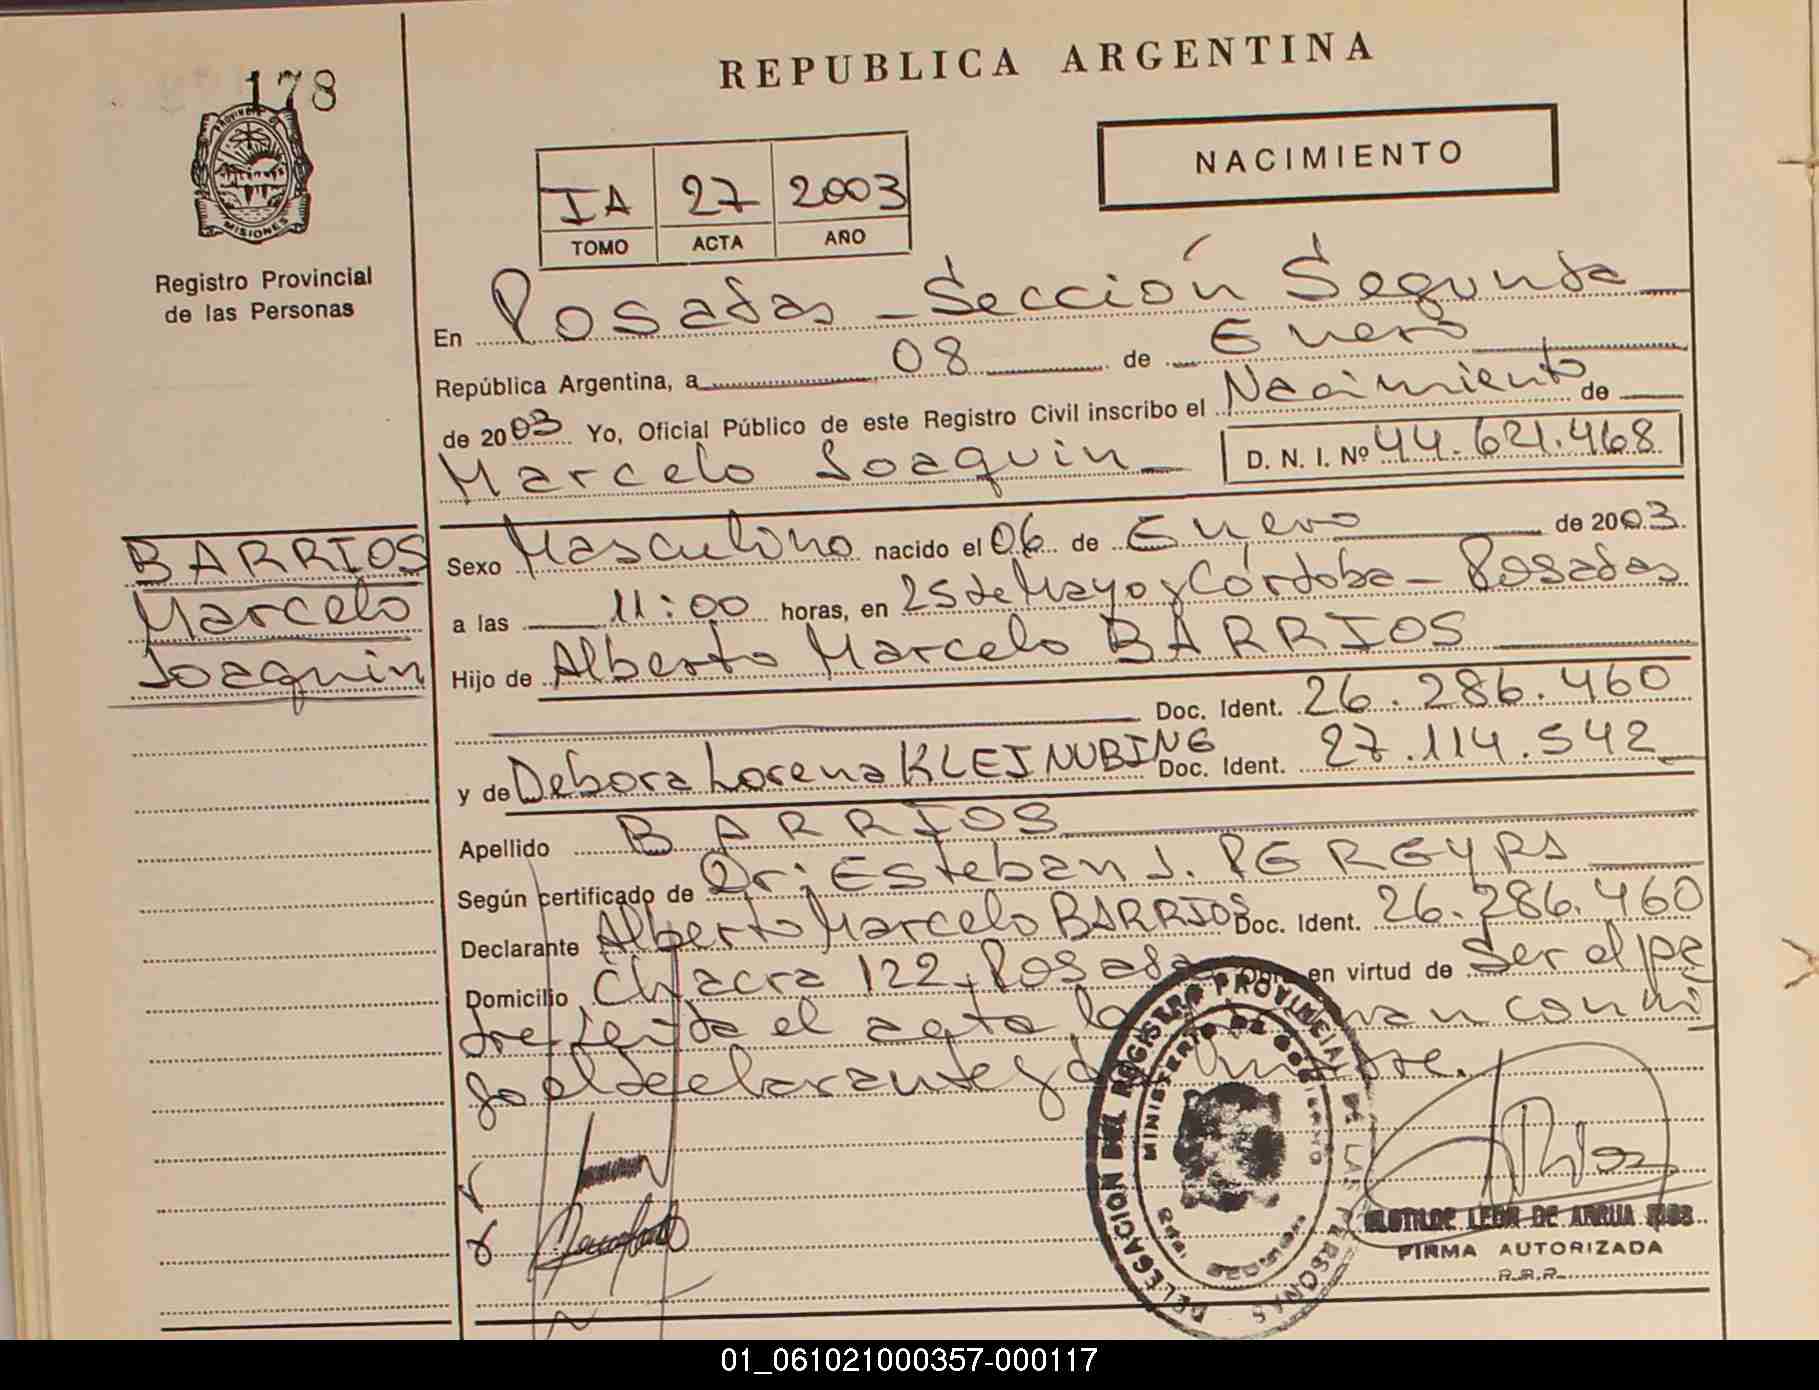 178
PROVINCIA DE
MISIONES
Registro Provincial
de las Personas
REPUBLICA ARGENTINA
NACIMIENTO
IA 27 2003
TOMO ACTA AÑO
En Posadas - Sección Segunda
República Argentina, a 08 de Enero
de 2003 Yo, Oficial Público de este Registro Civil inscribo el Nacimiento de
Marcelo Joaquin D. N. I. Nº 44.621.468
BARRIOS
Marcelo
Joaquin
Sexo Masculino nacido el 06 de Enero de 2003.
a las 11:00 horas, en 25 de Mayo y Córdoba - Posadas
Hijo de Alberto Marcelo BARRIOS
Doc. Ident. 26.286.460
y de Debora Lorena KLEINUBING Doc. Ident. 27.114.542
Apellido BARRIOS
Según certificado de Dr: Esteban J. PEREYRA
Declarante Alberto Marcelo BARRIOS Doc. Ident. 26.286.460
Domicilio Chacra 122, Posadas en virtud de ser el pa
dre leida el acta la man conmi
go el declarante y la madre.
DELEGACION DEL REGISTRO PROVINCIAL DE LAS PERSONAS
MINISTERIO DE GOBIERNO
CLOTILDE LEON DE ARRUA
FIRMA AUTORIZADA
R.P.P.
01_061021000357-000117